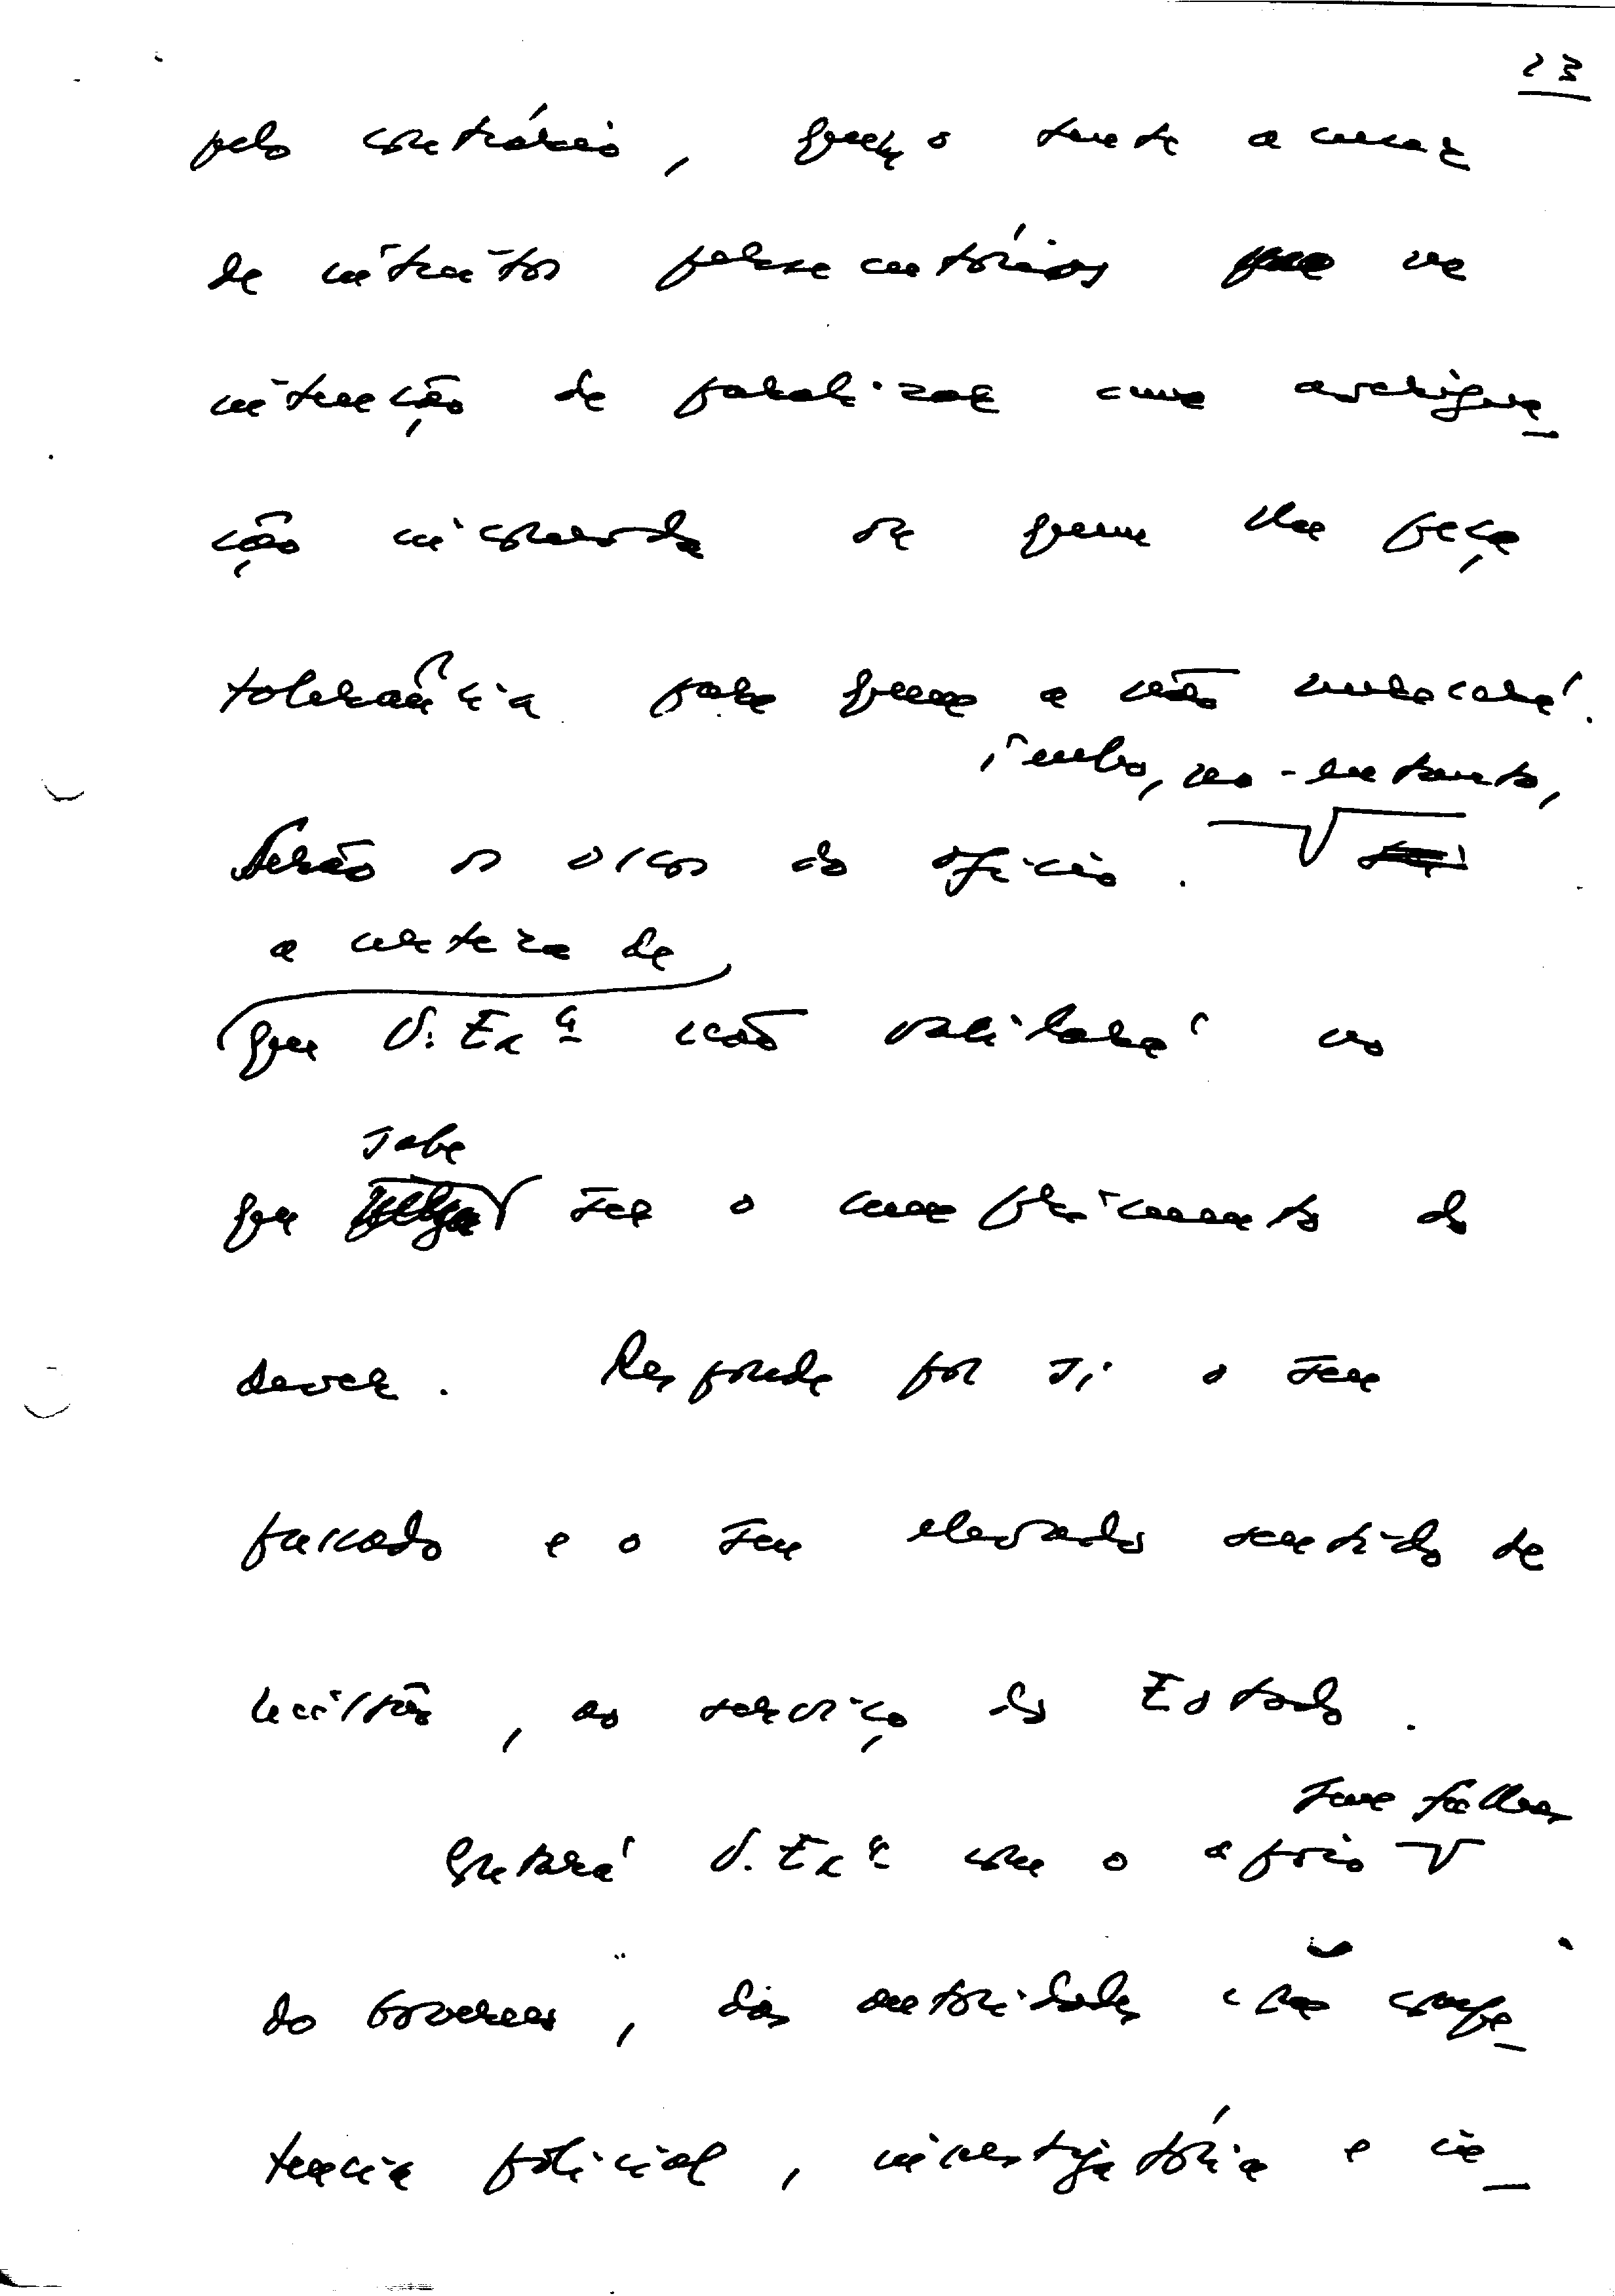 23
pelo contrário, quem o tente acusar
de intuitos persecutórios na
intenção de paralizar uma averigua_
ção incômoda ou quem lhe peça
tolerância para quem a não merecerá.
Tenho, no-entanto,
Serão os ossos do ofício.
a certeza de
que V. Exª não vacilará no
sabe
que ser o cumprimento do
dever. Responde por si o seu
passado e o seu elevado sentido de
missão, ao serviço do Estado.
sem falhas
Contará V. Exª com o apoio
do Governo, das autoridades com compe_
tência policial, investigatória e in_